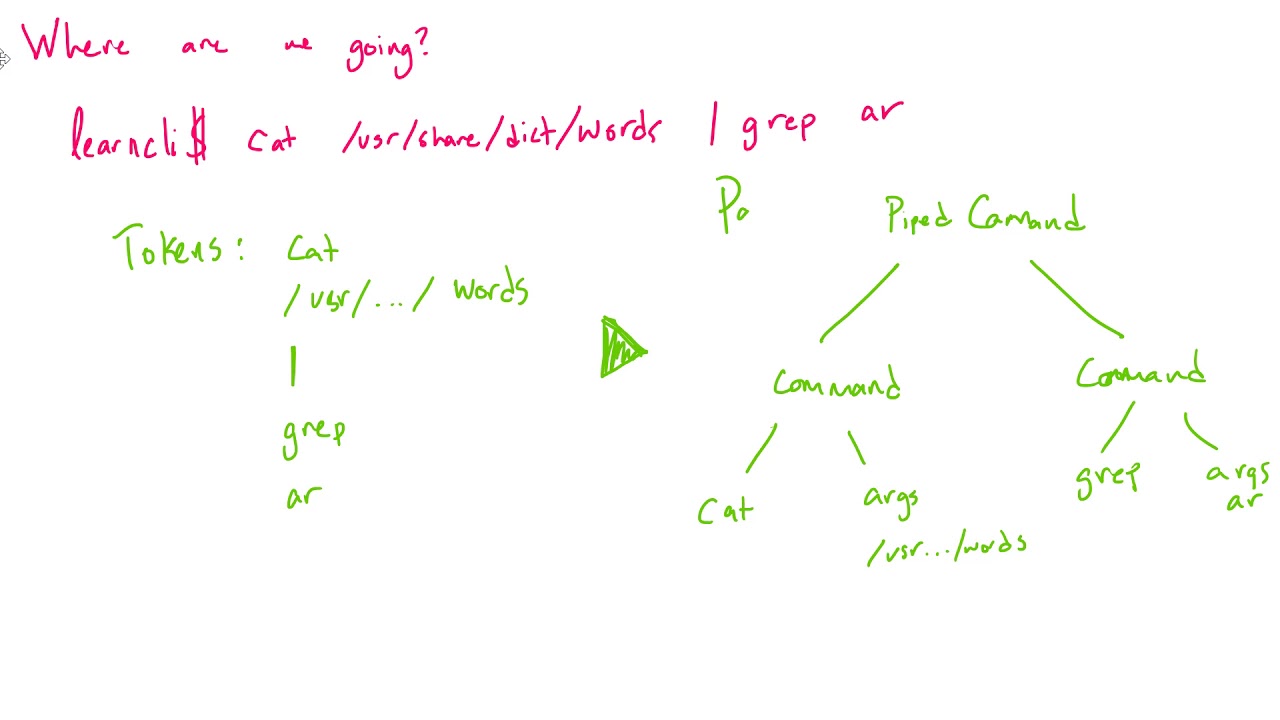 Where are we going?
learncli$ cat /usr/share/dict/words | grep ar
Pa
Piped Command
Tokens: cat
/usr/.../words
|
grep
ar
Command
Command
cat
args
/usr.../words
grep
args
ar